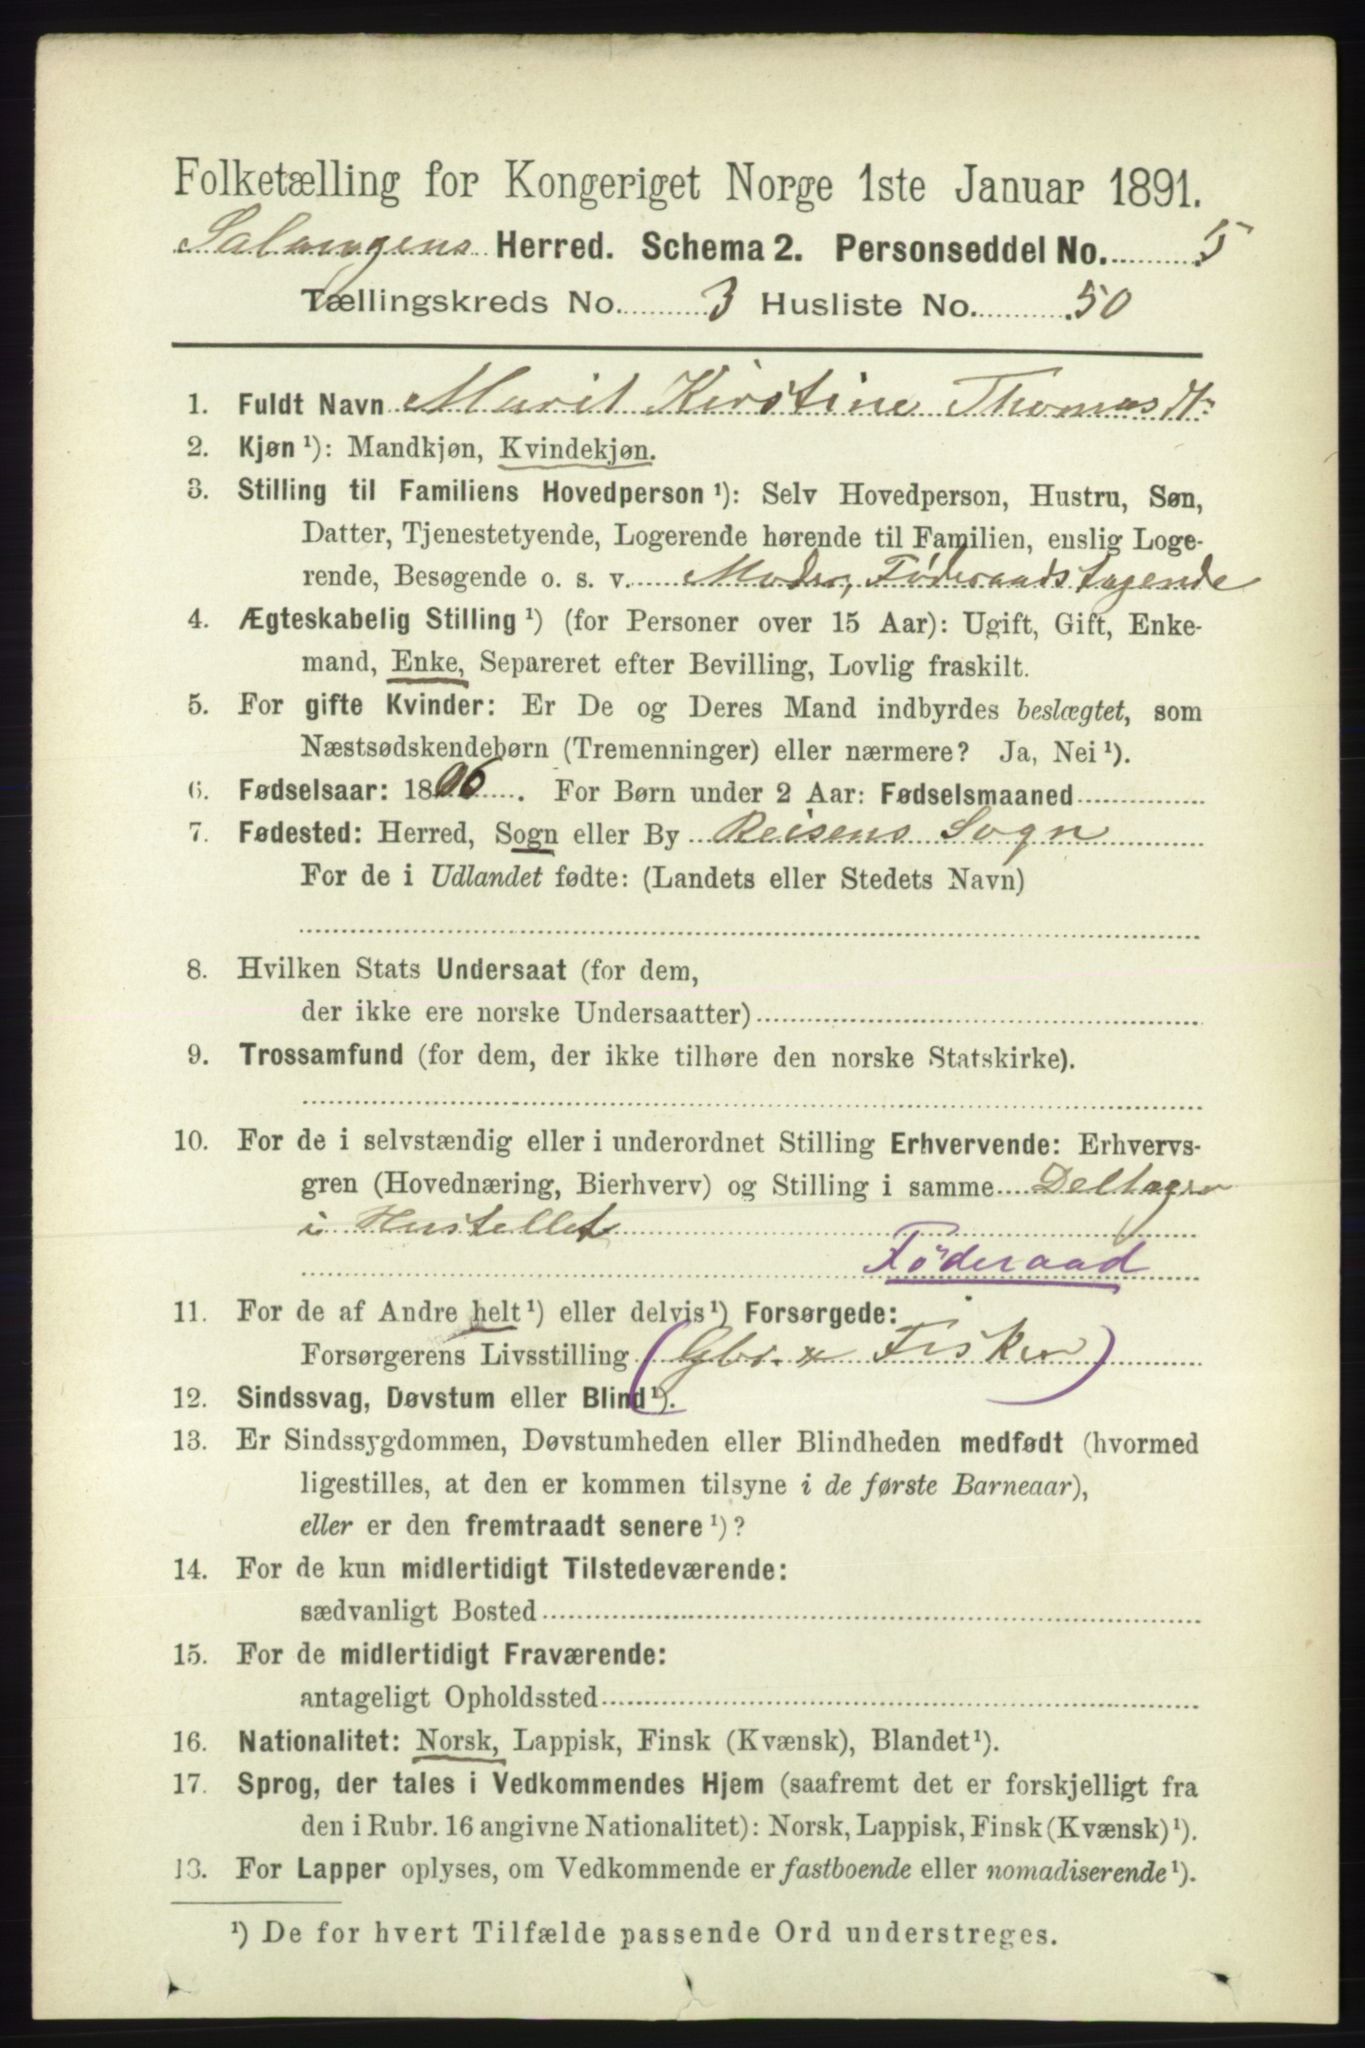 Folketælling for Kongeriget Norge 1ste Januar 1891.
Salangens Herred. Schema 2. Personseddel No. 5
Tællingskreds No. 3 Husliste No. 50
1. Fuldt Navn Marit Kirstine Thomasdtr
2. Kjøn ¹): Mandkjøn, Kvindekjøn.
3. Stilling til Familiens Hovedperson ¹): Selv Hovedperson, Hustru, Søn,
Datter, Tjenestetyende, Logerende hørende til Familien, enslig Loge-
rende, Besøgende o. s. v. Moder, Föderaadstagende
4. Ægteskabelig Stilling ¹) (for Personer over 15 Aar): Ugift, Gift, Enke-
mand, Enke, Separeret efter Bevilling, Lovlig fraskilt.
5. For gifte Kvinder: Er De og Deres Mand indbyrdes beslægtet, som
Næstsødskendebørn (Tremenninger) eller nærmere? Ja, Nei ¹).
6. Fødselsaar: 1806. For Børn under 2 Aar: Fødselsmaaned
7. Fødested: Herred, Sogn eller By Reisens Sogn
For de i Udlandet fødte: (Landets eller Stedets Navn)
8. Hvilken Stats Undersaat (for dem,
der ikke ere norske Undersaatter)
9. Trossamfund (for dem, der ikke tilhøre den norske Statskirke).
10. For de i selvstændig eller i underordnet Stilling Erhvervende: Erhvervs-
gren (Hovednæring, Bierhverv) og Stilling i samme Deltager
i Hustellet
Föderaad
11. For de af Andre helt ¹) eller delvis ¹) Forsørgede:
Forsørgerens Livsstilling (Gbr. x Fisker)
12. Sindssvag, Døvstum eller Blind ¹).
13. Er Sindssygdommen, Døvstumheden eller Blindheden medfødt (hvormed
ligestilles, at den er kommen tilsyne i de første Barneaar),
eller er den fremtraadt senere ¹)?
14. For de kun midlertidigt Tilstedeværende:
sædvanligt Bosted
15. For de midlertidigt Fraværende:
antageligt Opholdssted
16. Nationalitet: Norsk, Lappisk, Finsk (Kvænsk), Blandet ¹).
17. Sprog, der tales i Vedkommendes Hjem (saafremt det er forskjelligt fra
den i Rubr. 16 angivne Nationalitet): Norsk, Lappisk, Finsk (Kvænsk) ¹).
13. For Lapper oplyses, om Vedkommende er fastboende eller nomadiserende ¹).
¹) De for hvert Tilfælde passende Ord understreges.